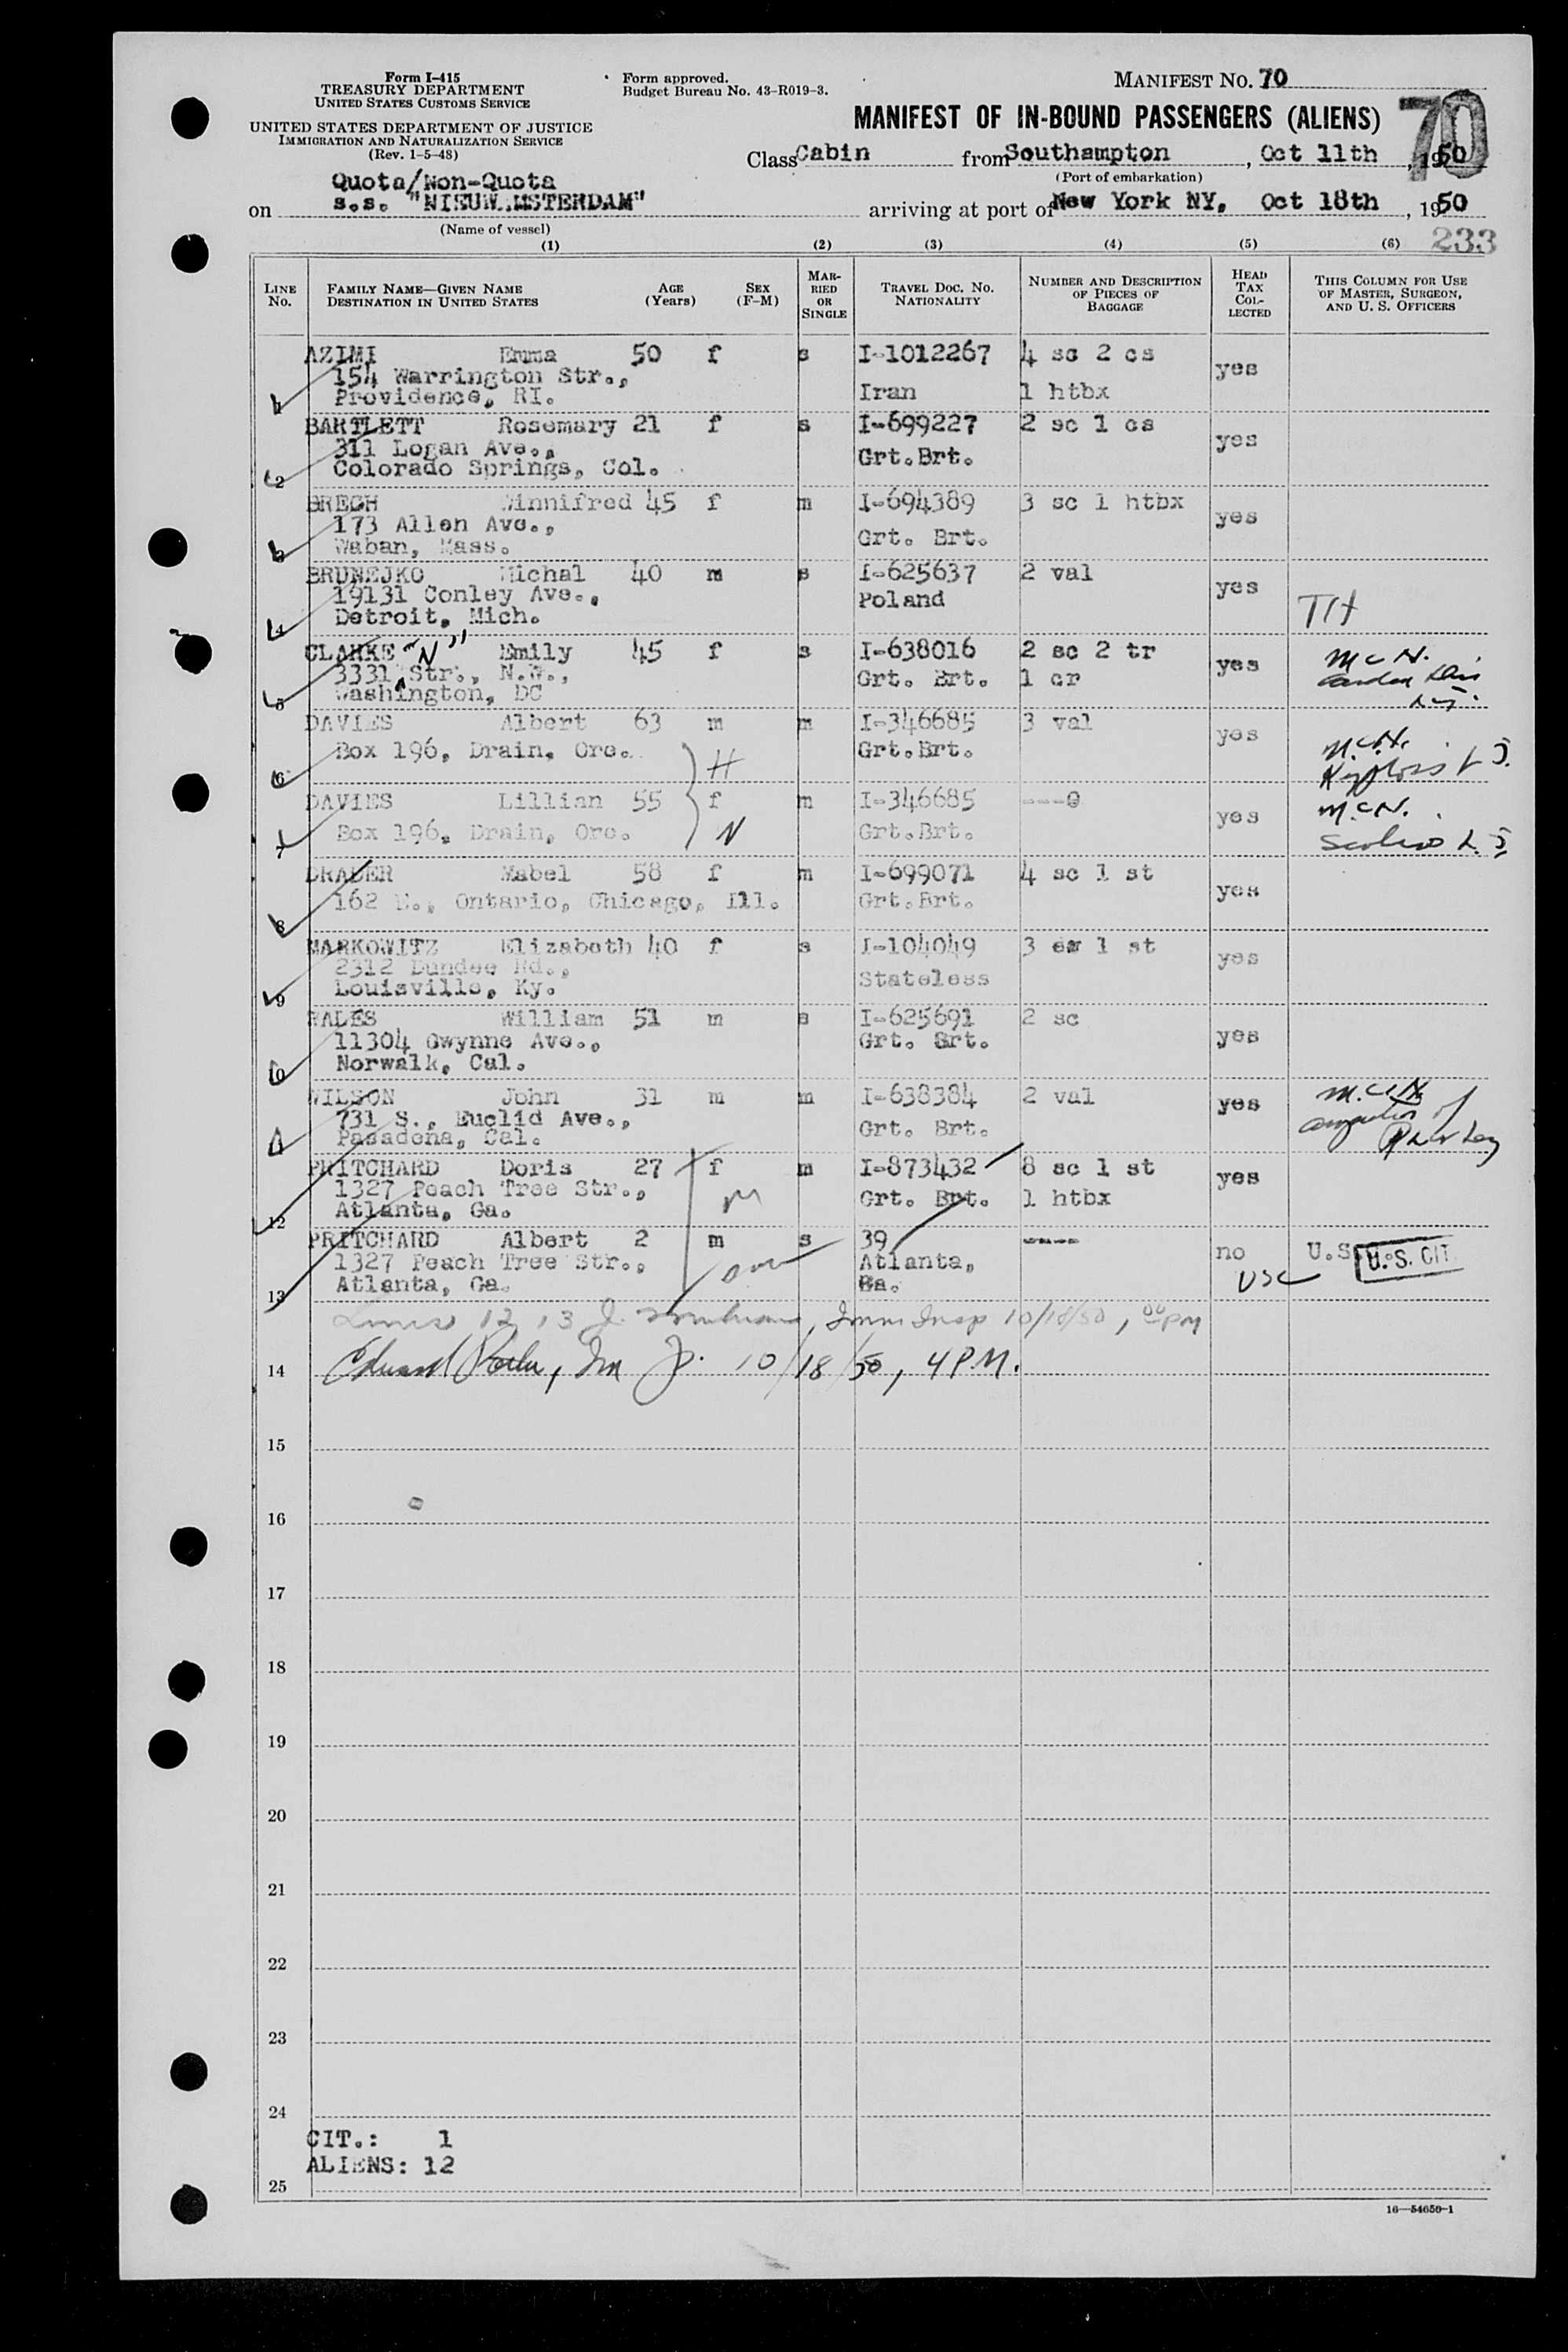 Form I-415
TREASURY DEPARTMENT
UNITED STATES CUSTOMS SERVICE
UNITED STATES DEPARTMENT OF JUSTICE
IMMIGRATION AND NATURALIZATION SERVICE
(Rev. 1-5-48)
Form approved.
Budget Bureau No. 43-R019-3.
MANIFEST NO. 70
MANIFEST OF IN-BOUND PASSENGERS (ALIENS)
70
Class Cabin from Southampton, Oct 11th, 1950
(Port of embarkation)
Quota/Non-Quota
on s.s. "NIEUW AMSTERDAM" arriving at port of New York NY, Oct 18th, 1950
(Name of vessel)
233
(1) (2) (3) (4) (5) (6)
LINE No. FAMILY NAME—GIVEN NAME DESTINATION IN UNITED STATES AGE (Years) SEX (F-M) MARRIED OR SINGLE TRAVEL DOC. NO. NATIONALITY NUMBER AND DESCRIPTION OF PIECES OF BAGGAGE HEAD TAX COLLECTED THIS COLUMN FOR USE OF MASTER, SURGEON, AND U. S. OFFICERS
AZIMI Emma 50 f s I-1012267 4 sc 2 cs
154 Warrington Str., yes
1 Providence, RI. Iran 1 htbx
BARTLETT Rosemary 21 f s I-699227 2 sc 1 cs
311 Logan Ave., Grt.Brt. yes
2 Colorado Springs, Col.
BRECH Winnifred 45 f m I-694389 3 sc 1 htbx
173 Allen Ave., Grt. Brt. yes
3 Waban, Mass.
BRUNEJKO Michal 40 m s I-625637 2 val
19131 Conley Ave., Poland yes
4 Detroit, Mich.
CLARKE Emily 45 f s I-638016 2 sc 2 tr
3331 "N" Str., N.W., Grt. Brt. 1 cr yes McN.
5 Washington, DC
DAVIES Albert 63 m m I-346685 3 val
6 Box 196, Drain, Ore. H Grt.Brt. yes M.c.N.
DAVIES Lillian 55 f m I-346685 ---0
7 Box 196, Drain, Ore. N Grt.Brt. yes M.c.N.
DRADER Mabel 58 f m I-699071 4 sc 1 st
8 162 E., Ontario, Chicago, Ill. Grt.Brt. yes
MARKOWITZ Elizabeth 40 f s I-104049 3 1 st
2312 Dundee Rd., Stateless yes
9 Louisville, Ky.
WALES William 51 m s I-625691 2 sc
11304 Gwynne Ave., Grt. Brt. yes
10 Norwalk, Cal.
WILSON John 31 m m I-638384 2 val
731 S., Euclid Ave., Grt. Brt. yes
11 Pasadena, Cal.
PRITCHARD Doris 27 f m I-873432 8 sc 1 st
1327 Peach Tree Str., Grt. Brt. 1 htbx yes
12 Atlanta, Ga.
PRITCHARD Albert 2 m s 39 ----
1327 Peach Tree Str., Atlanta, no U.S. U.S. CIT.
13 Atlanta, Ga. Ga. USC
Lines 12, 13 Imm Insp 10/18/50, PM
14 Edward 10/18/50, 4 P.M.
15
16
17
18
19
20
21
22
23
24
CIT.: 1
ALIENS: 12
25
16—54650-1